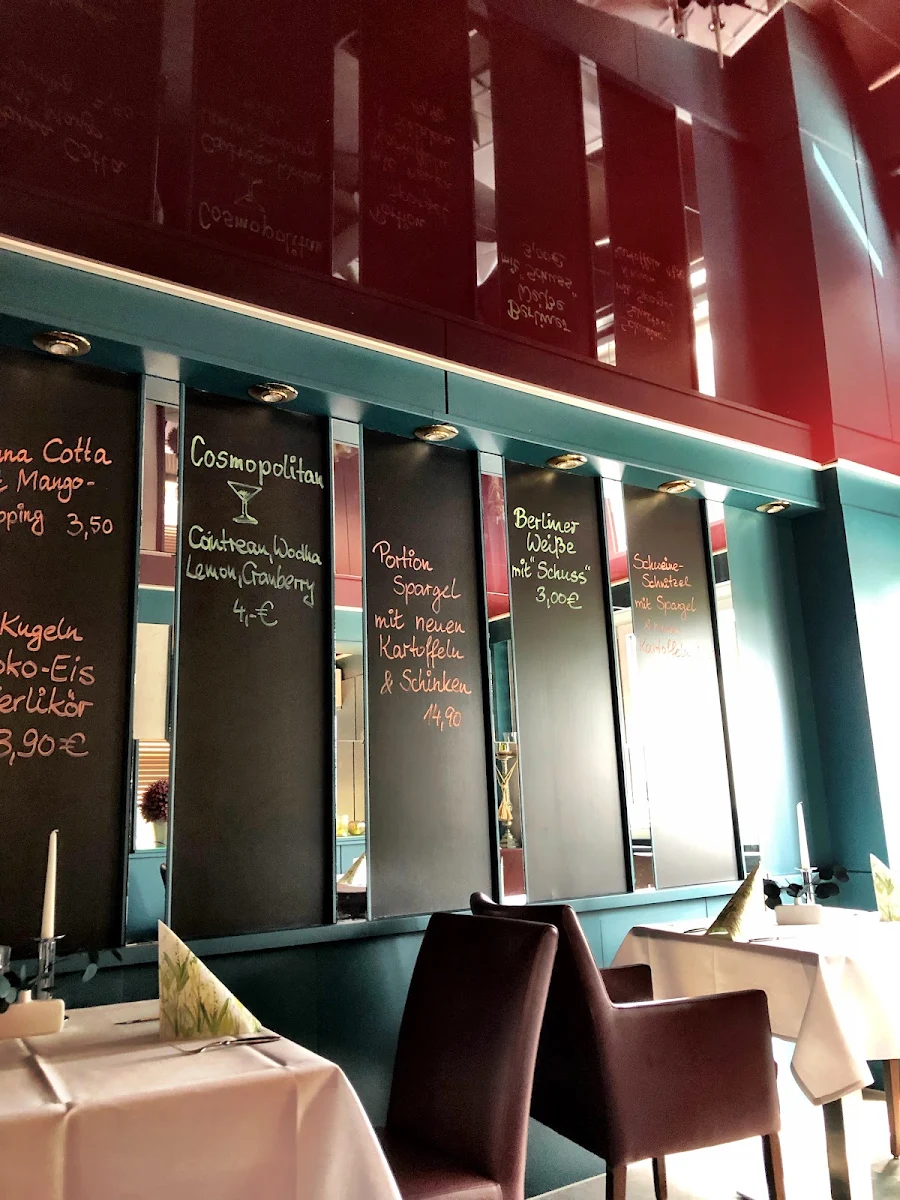 nna Cotta
t Mango-
pping 3,50
Kugeln
oko-Eis
ierlikör
3,90€
Cosmopolitan
Cointreau, Wodka
Lemon, Cranberry
4,-€
Portion
Spargel
mit neuen
Kartoffeln
& Schinken
14,90
Berliner
Weiße
mit "Schuss"
3,00€
Schweine-
Schnitzel
mit Spargel
& neuen
Kartoffeln